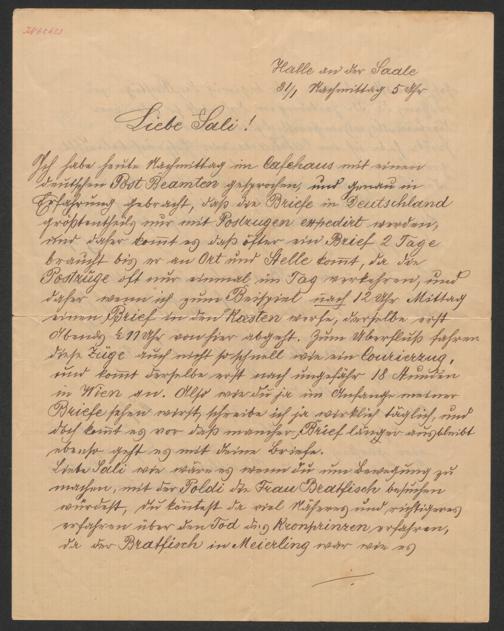 Halle an der Saale
31/1 Nachmittag 5 Uhr
Liebe Sali!
Ich habe heute Nachmittag im Cafehaus mit einen
deutschen Post Beamten gesprochen, und genau in
Erfahrung gebracht, daß die Briefe in Deutschland
größtentheils nur mit Postzugen expedirt werden,
und daher kommt es daß öfter ein Brief 2 Tage
braucht bis er an Ort und Stelle komt, da die
Postzüge oft nur einmal im Tag verkehren, und
daher wenn ich zum Beispiel nach 12 Uhr Mittag
einen Brief in den Kasten werfe, derselbe erst
Abends 11 Uhr von hier abgeht. Zum Uberfluß fahren
diese Züge auch nicht so schnell wie ein Courierzug,
und komt derselbe erst nach ungefähr 18 Stunden
in Wien an. Also wie du ja im Anfange meiner
Briefe sehen wirst, schreibe ich ja wirklich täglich, und
doch komt es vor daß mancher Brief länger ausbleibt
ebenso geht es mit deine Briefe.
Liebe Sali wie wäre es wenn du um Bewegung zu
machen, mit der Poldi die Frau Bratfisch besuchen
würdest, du köntest da viel Näheres und richtigeres
erfahren über den Tod des Kronprinzen erfahren,
da der Bratfisch in Meierling war wie es